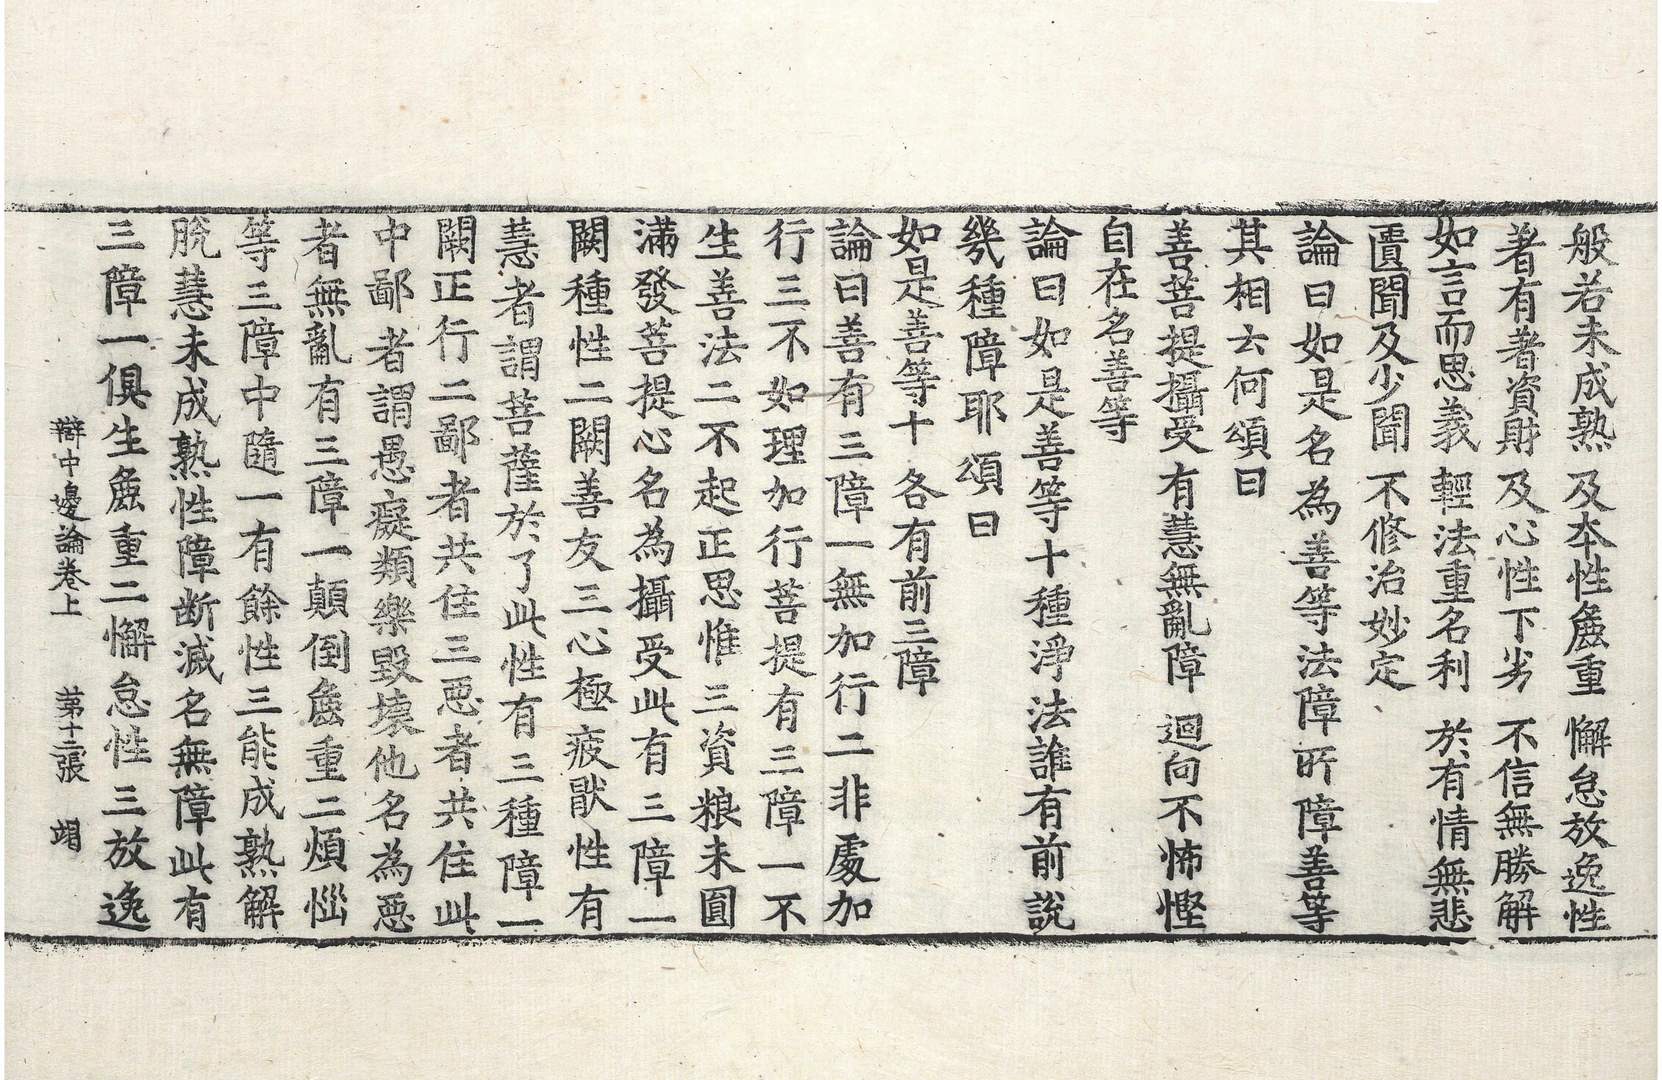 般若未成熟　及夲性麁重　懈怠放逸性
著有著資財　及心性下劣　不信無勝解
如言而思義　輕法重名利　於有情無悲
匱聞及少聞　不修治妙定
論曰如是名為善等法障所障善等
其相云何頌曰
善菩提攝受　有慧無亂障　迴向不怖慳
自在名善等
論曰如是善等十種淨法誰有前說
幾種障耶頌曰
如是善等十　各有前三障
論曰善有三障一無加行二非處加
行三不如理加行菩提有三障一不
生善法二不起正思惟三資粮未圓
滿發菩提心名為攝受此有三障一
闕種性二闕善友三心極疲猒性有
慧者謂菩薩於了此性有三種障一
闕正行二鄙者共住三惡者共住此
中鄙者謂愚癡類樂毀壞他名為惡
者無亂有三障一顛倒麁重二煩惱
等三障中隨一有餘性三能成熟解
脫慧未成熟性障断滅名無障此有
三障一俱生麁重二懈怠性三放逸
辯中邊論卷上　第十二張　竭